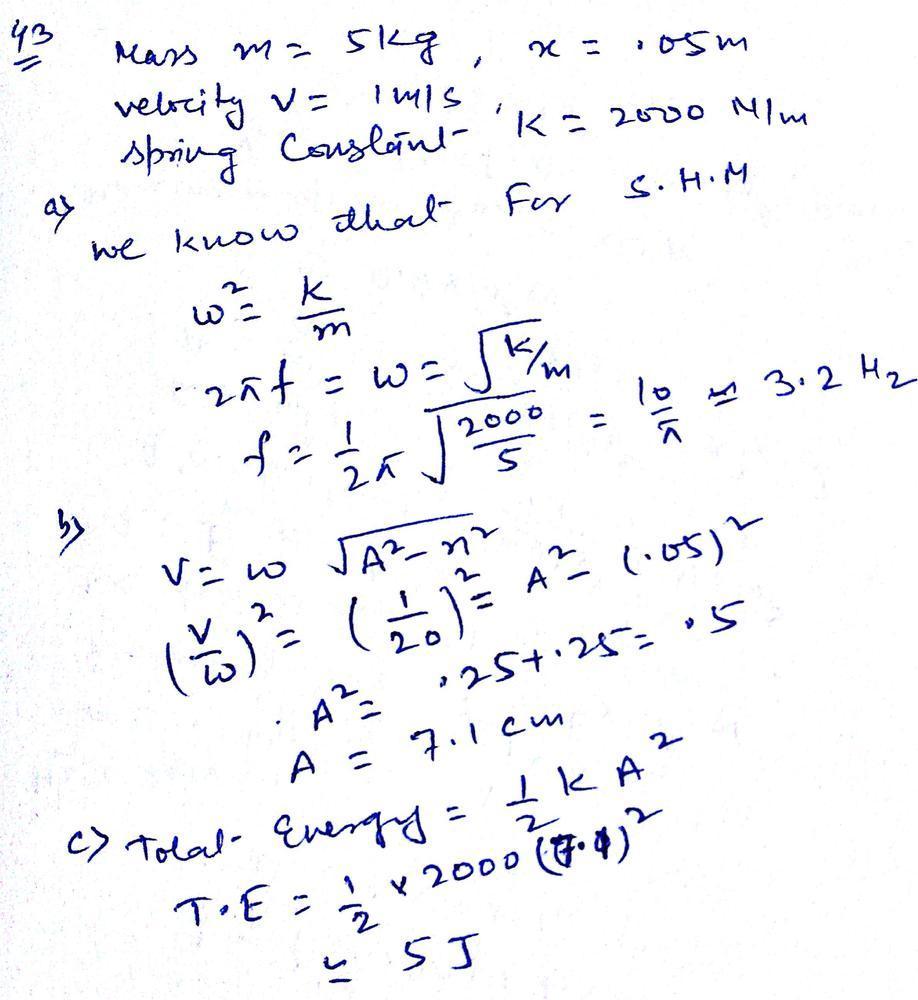 43 Mass m = 5kg, x = .05m
velocity v = 1 m/s,
spring Constant K = 2000 N/m
a) we know that For S.H.M
ω² = k/m
2πf = ω = √k/m
f = 1/2π √2000/5 = 10/π ≃ 3.2 Hz
b) v = ω √A² - x²
(v/ω)² = (1/20)² = A² - (.05)²
A² = .25 + .25 = .5
A = 7.1 cm
c) Total Energy = 1/2 k A²
T.E = 1/2 × 2000 (7.1)²
≃ 5 J